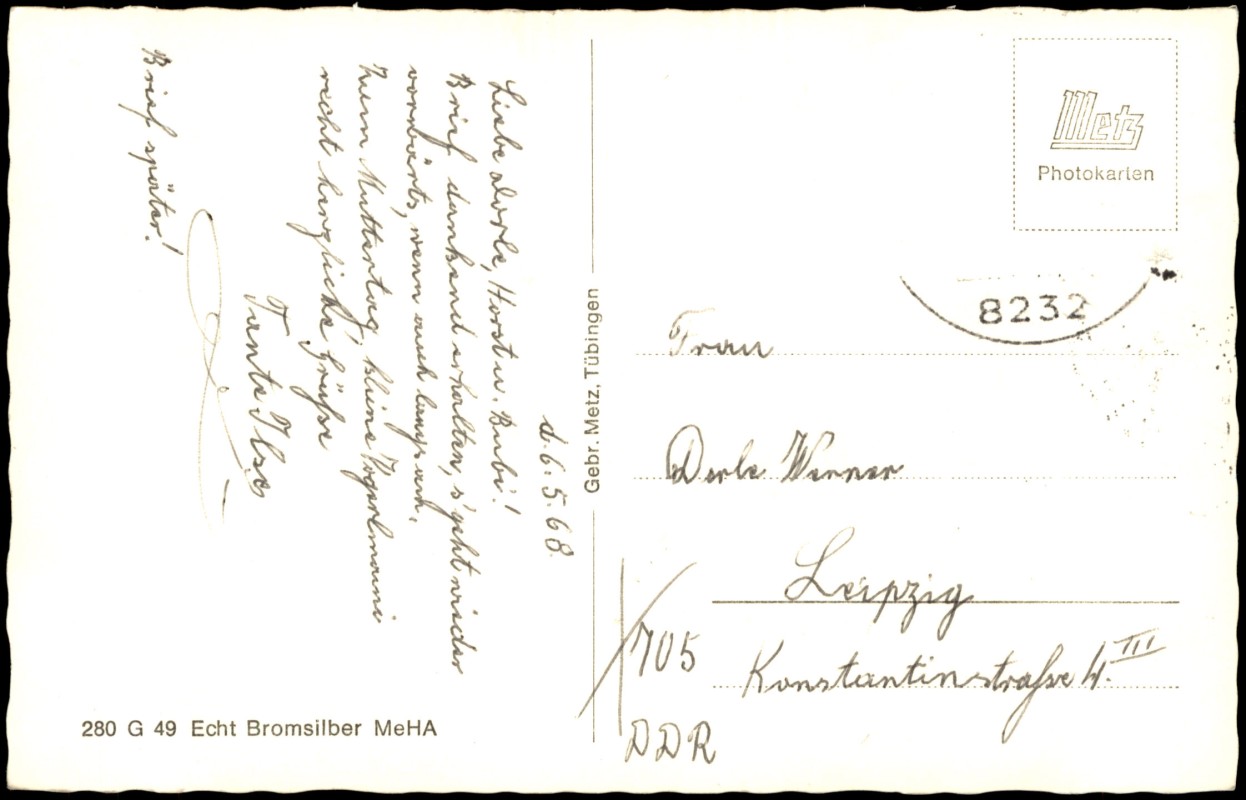 d. 6.5.68
Liebe Dorle, Horst u. Bubi!
Brief dankend erhalten, s'geht wieder
vorwärts, wenn auch langsam.
Zum Muttertag, kleine
recht herzliche Grüße
Tante Ilse
Brief später!
Gebr. Metz, Tübingen
280 G 49 Echt Bromsilber MeHA
Metz
Photokarten
8232
Frau
Dorle Werner
Leipzig
705 Konstantinstraße 4. III
DDR